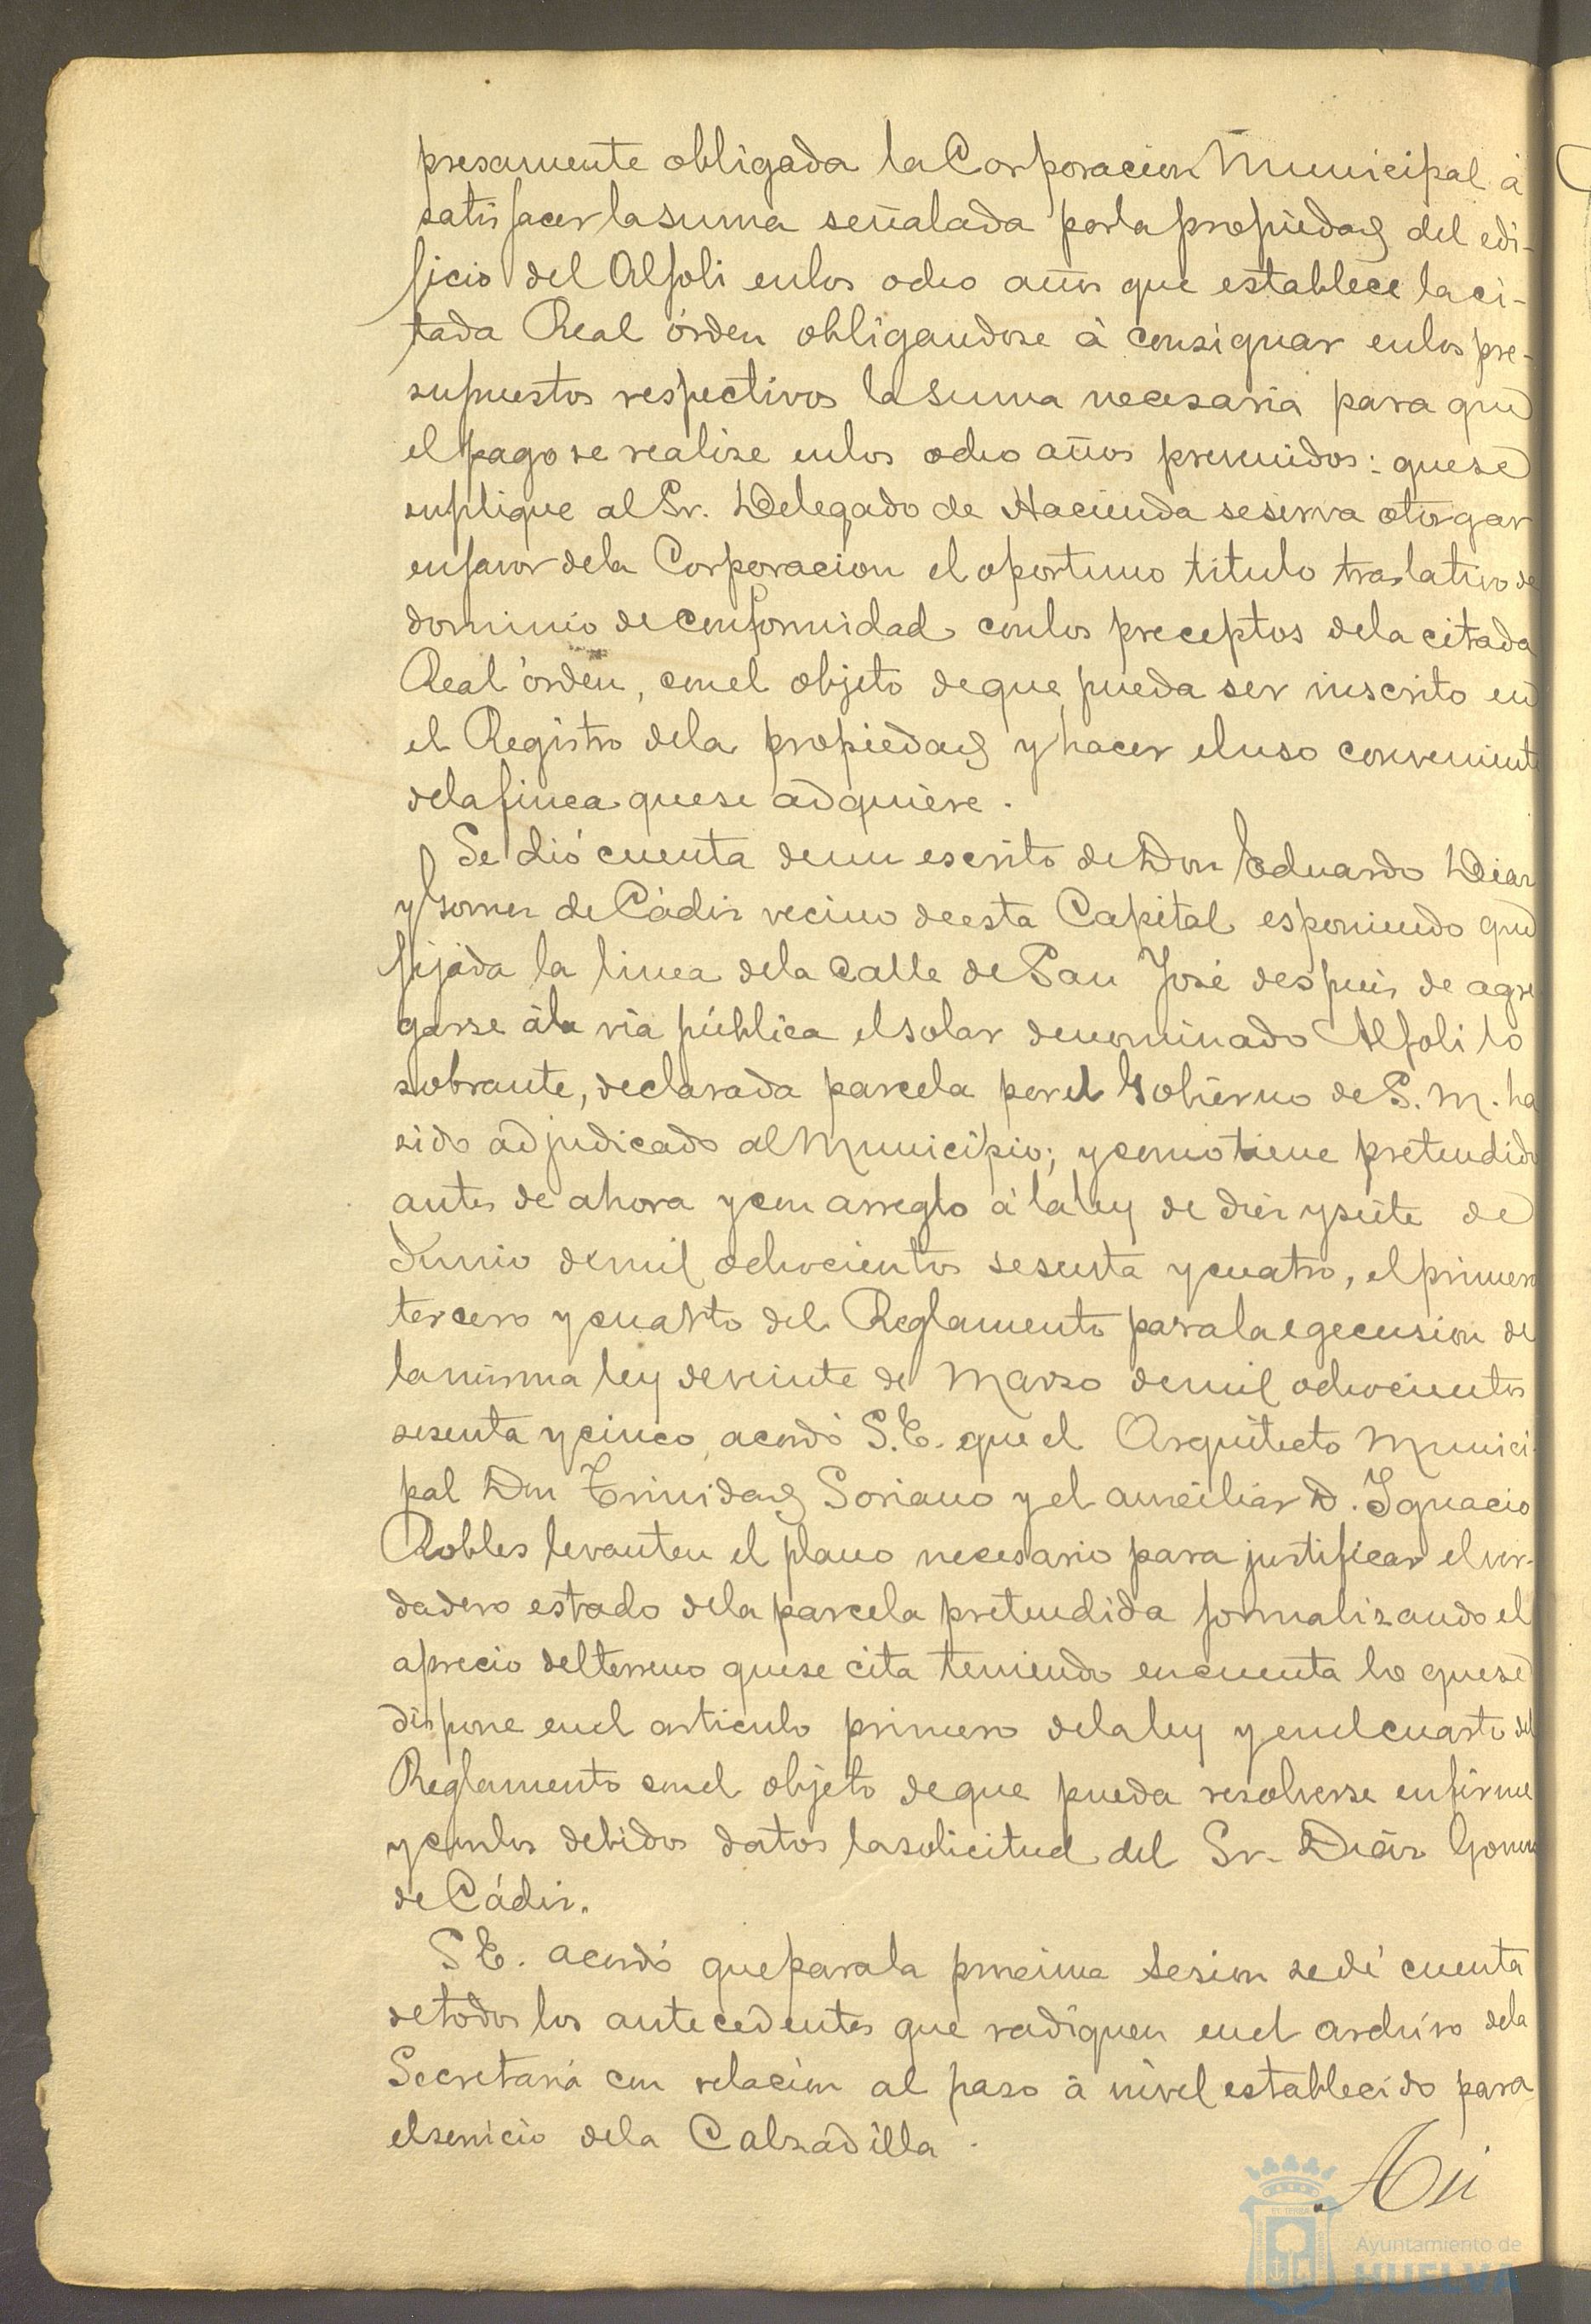 presamente obligada la Corporacion Municipal á
satisfacer la suma señalada por la propiedad del edi-
ficio del Alfoli en los ocho años que establece la ci-
tada Real órden obligandose á consignar en los pre-
supuestos respectivos la suma necesaria para que
el pago se realize en los ocho años prevenidos: que se
suplique al Sr. Delegado de Hacienda se sirva otorgar
en favor de la Corporacion el oportuno titulo traslativo de
dominio de conformidad con los preceptos de la citada
Real órden, con el objeto de que pueda ser inscrito en
el Registro de la propiedad y hacer el uso conveniente
de la finca que se adquiere.
Se dió cuenta de un escrito de Don Eduardo Diaz
y Gomez de Cádiz vecino de esta Capital esponiendo que
fijada la linea de la Calle de San José despues de agre
garse á la via pública el solar denominado Alfoli lo
sobrante, declarada parcela por el Gobierno de S. M. ha
sido adjudicado al Municipio; y como tiene pretendido
antes de ahora y con arreglo á la ley de diez y siete de
Junio de mil ochocientos sesenta y cuatro, el primero
tercero y cuarto del Reglamento para la egecusion de
la misma ley de veinte de Marzo de mil ochocientos
sesenta y cinco, acordó S.E. que el Arquitecto Munici
pal Don Trinidad Soriano y el auxiliar D. Ignacio
Robles levanten el plano necesario para justificar el ver-
dadero estado de la parcela pretendida formalizando el
aprecio del terreno que se cita teniendo en cuenta lo que se
dispone en el articulo primero de la ley y en el cuarto del
Reglamento con el objeto de que pueda resolverse en firme
y con los debidos datos la solicitud del Sr. Diaz Gomez
de Cádiz.
S E. acordó que para la procsima Sesion se dé cuenta
de todos los antecedentes que radiquen en el archivo de la
Secretaria con relacion al paso á nivel establecido para
el servicio de la Calzadilla.
Ayuntamiento de
HUELVA